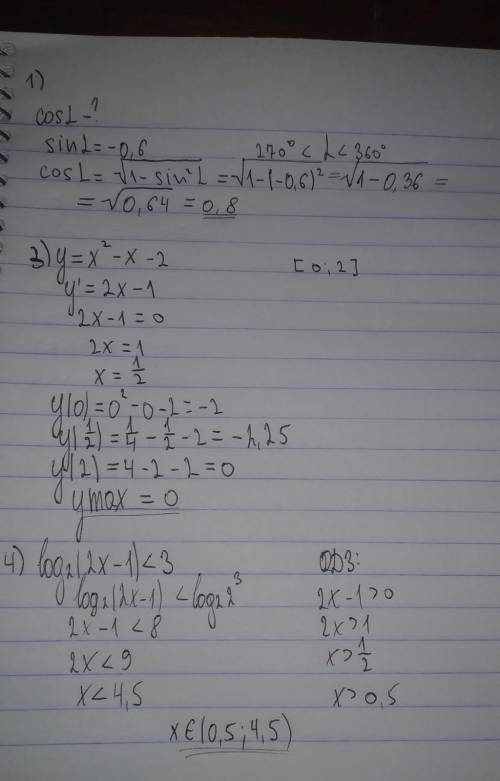 1)
cosL-?
sinL=-0,6 270° < L < 360°
cosL=√1-sin²L =√1-(-0,6)² =√1-0,36 =
=√0,64 = 0,8
3) y=x²-x-2 [0;2]
y'=2x-1
2x-1=0
2x=1
x=1/2
y(0)=0²-0-2=-2
y(1/2)=1/4-1/2-2=-2,25
y(2)=4-2-2=0
ymax = 0
4) log₂(2x-1)<3 ОДЗ:
log₂(2x-1) <log₂2³ 2x-1>0
2x-1 <8 2x>1
2x<9 x>1/2
x<4,5 x>0,5
x∈(0,5;4,5)